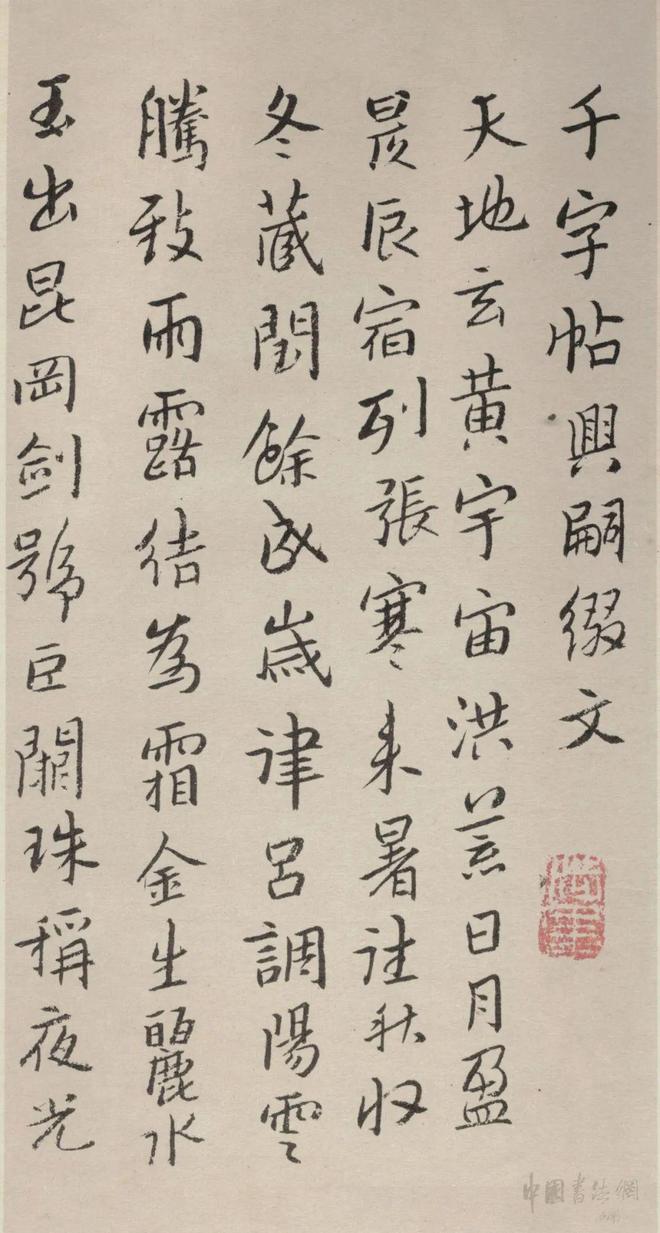 千字帖興嗣綴文
天地玄黃宇宙洪荒日月盈
昃辰宿列張寒来暑往秋収
冬藏閏餘成歲律呂調陽雲
騰致雨露結為霜金生麗水
玉出崑岡劍號巨闕珠稱夜光
中國書法網